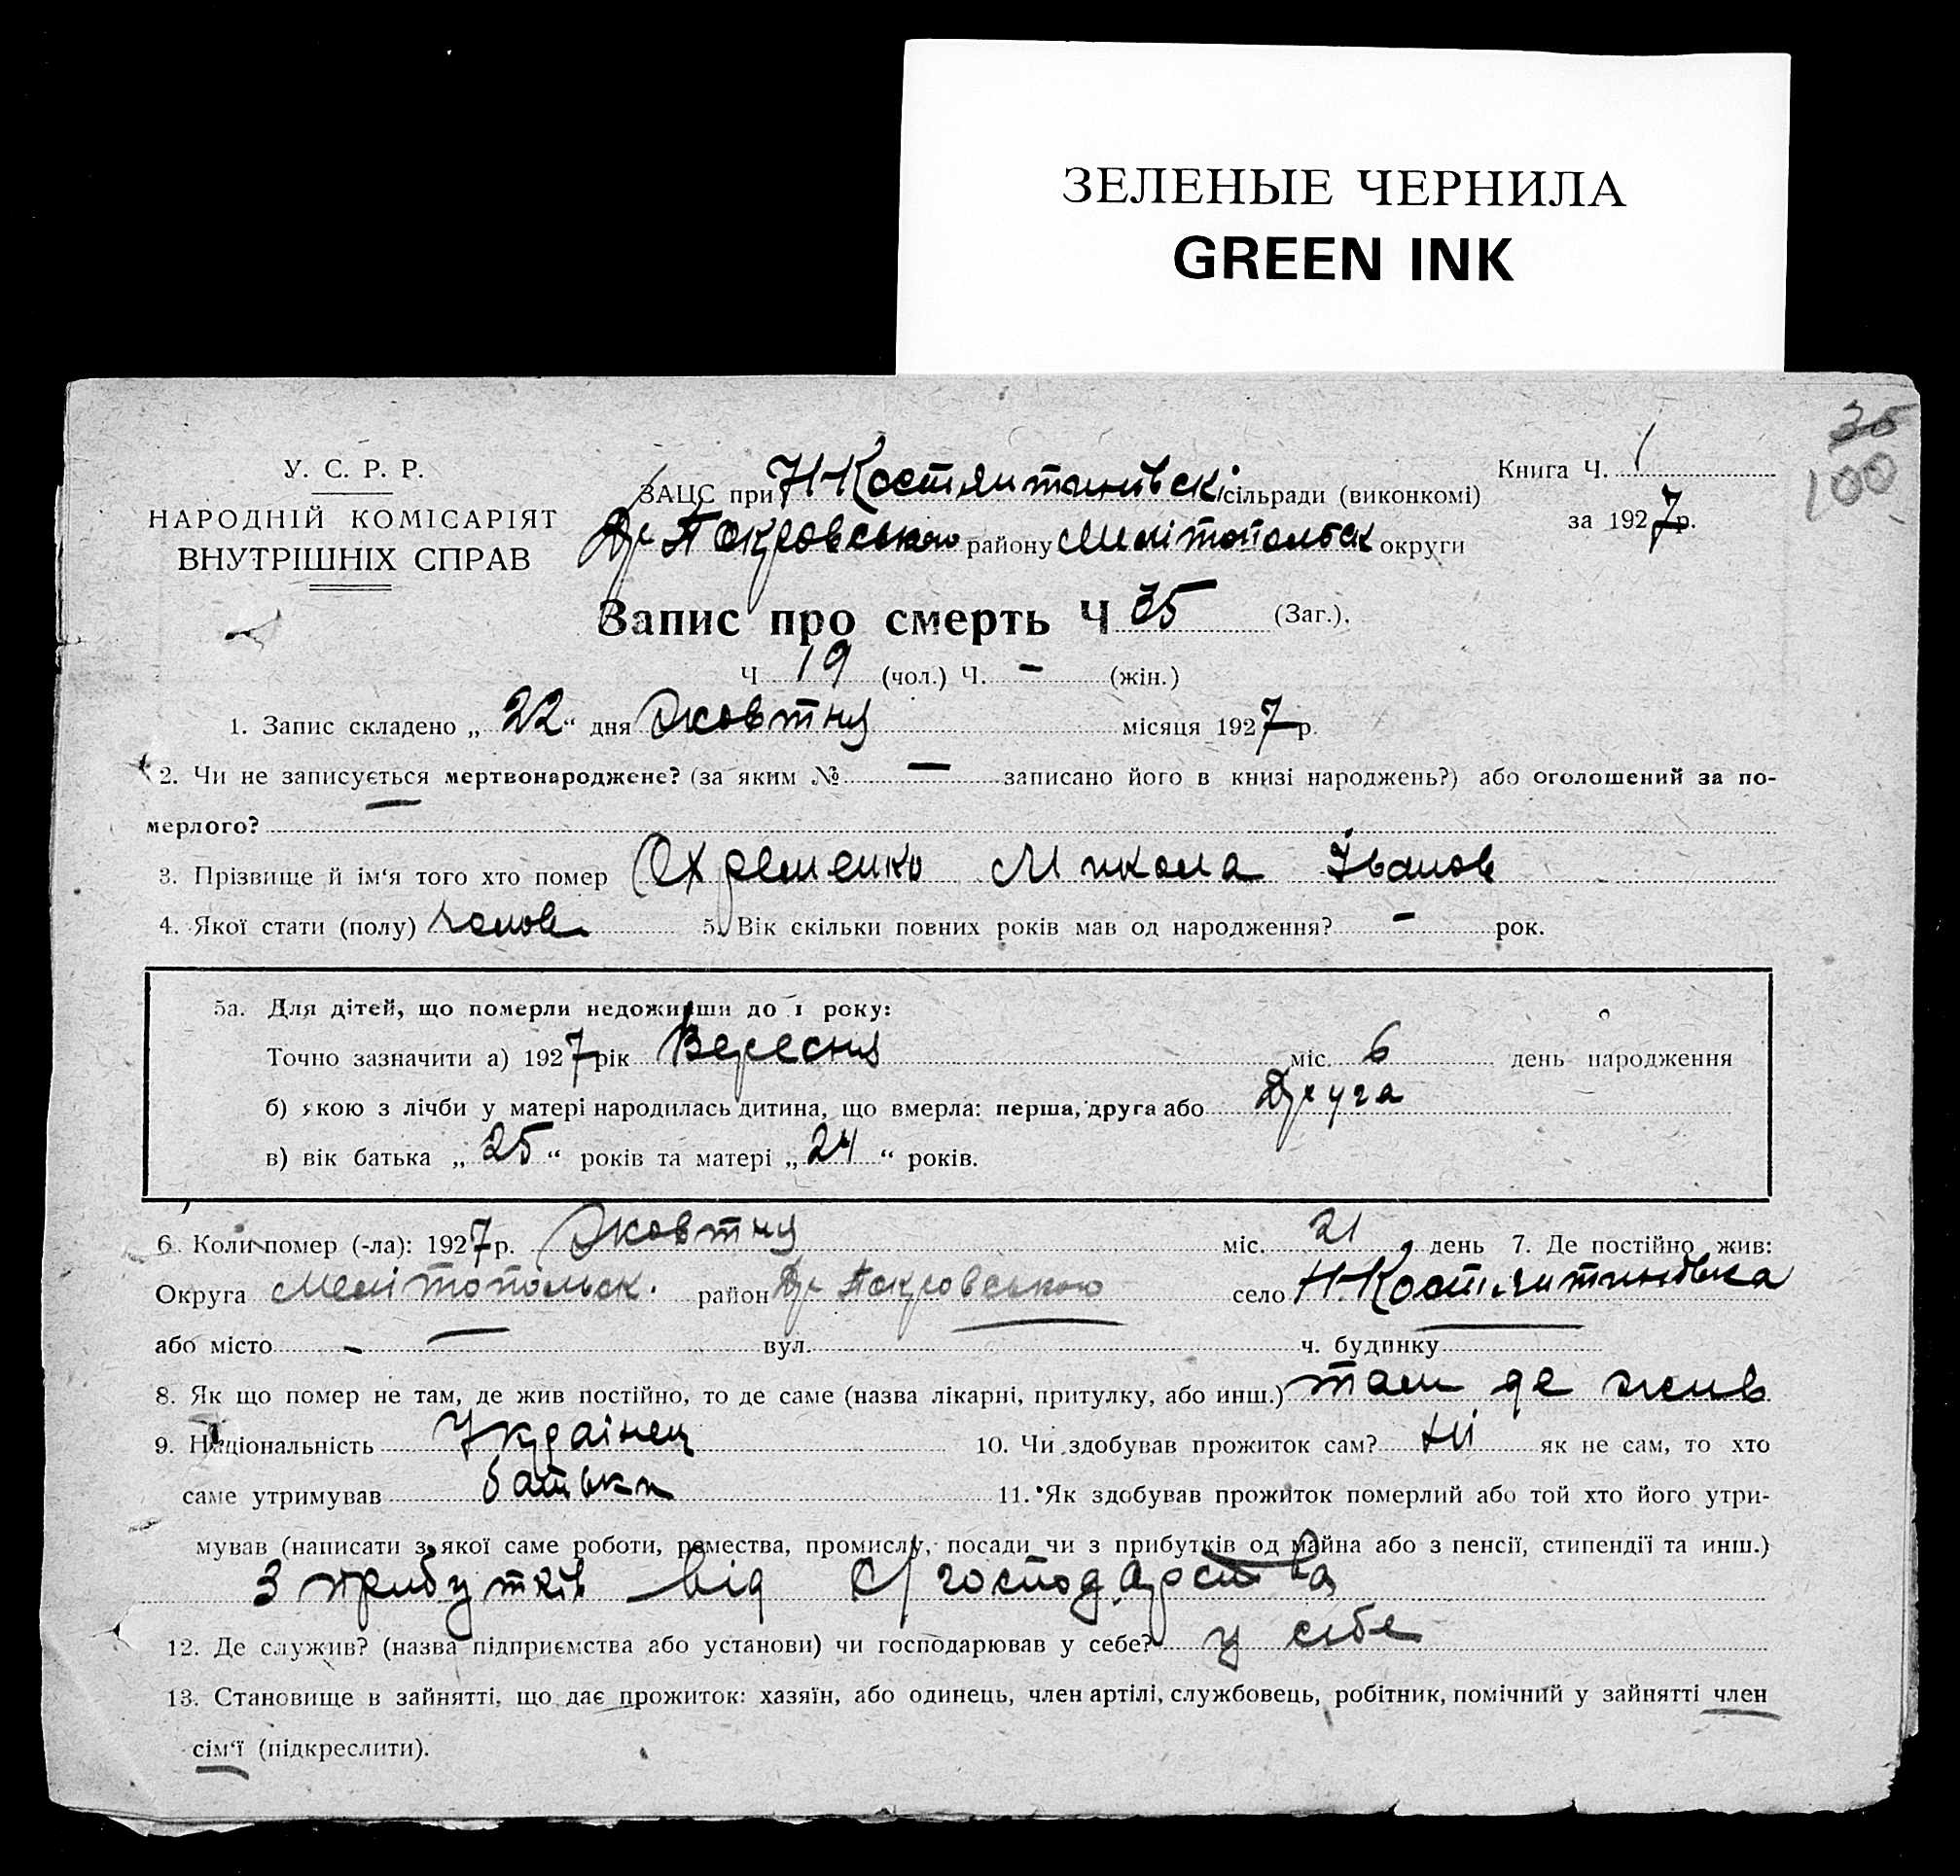 ЗЕЛЕНЫЕ ЧЕРНИЛА
GREEN INK
35
100
У. С. Р. Р.
НАРОДНІЙ КОМІСАРІЯТ
ВНУТРІШНІХ СПРАВ
ЗАЦС при Н-Костянтинівскі сільради (виконкомі)
Др Покровського району Мелітопольськ округи
Книга Ч. 1
за 1927 р.
Запис про смерть Ч 35 (Заг.).
Ч 19 (чол.) Ч. — (жін.)
1. Запис складено „ 22 “ дня Жовтня місяця 1927 р.
2. Чи не записується мертвонароджене? (за яким № — записано його в книзі народжень?) або оголошений за по-
мерлого? —
3. Прізвище й ім‘я того хто помер Охременко Микола Іванов
4. Якої стати (полу) чолов 5. Вік скільки повних років мав од народження? - рок.
5а. Для дітей, що померли недоживши до 1 року:
Точно зазначити а) 1927 рік Вересня міс. 6 день народження
б) якою з лічби у матері народилась дитина, що вмерла: перша, друга або Друга
в) вік батька „ 25 “ років та матері „ 24 “ років.
6. Коли помер (-ла): 1927 р. Жовтня міс. 21 день 7. Де постійно жив:
Округа Мелітопольск. район Др Покровського село Н-Костянтинівка
або місто - вул. ч. будинку
8. Як що помер не там, де жив постійно, то де саме (назва лікарні, притулку, або инш.) там де жив
9. Національність Українец 10. Чи здобував прожиток сам? Ні як не сам, то хто
саме утримував батьки 11. Як здобував прожиток померлий або той хто його утри-
мував (написати з якої саме роботи, ремества, промислу, посади чи з прибутків од майна або з пенсії, стипендії та инш.)
З прибутків від с/господарства
12. Де служив? (назва підприємства або установи) чи господарював у себе? у себе
13. Становище в зайнятті, що дає прожиток: хазяїн, або одинець, член артілі, службовець, робітник, помічний у зайнятті член
сім‘ї (підкреслити).